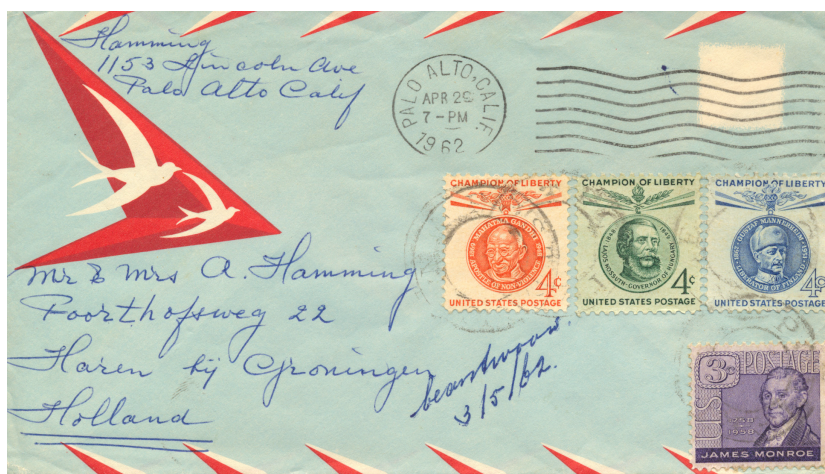 Hamming
1153 Lincoln Ave
Palo Alto Calif
PALO ALTO, CALIF.
APR 29
7 - PM
1962
CHAMPION OF LIBERTY
MAHATMA GANDHI
APOSTLE OF NON-VIOLENCE
4¢
UNITED STATES POSTAGE
CHAMPION OF LIBERTY
LAJOS KOSSUTH-GOVERNOR OF HUNGARY
4¢
UNITED STATES POSTAGE
CHAMPION OF LIBERTY
1867 GUSTAF MANNERHEIM 1951
LIBERATOR OF FINLAND
4¢
UNITED STATES POSTAGE
Mr & Mrs A. Hamming
Poorthofsweg 22
Haren bij Groningen
Holland
beantwoord.
3/5/62.
3¢ US POSTAGE
1758
1958
JAMES MONROE